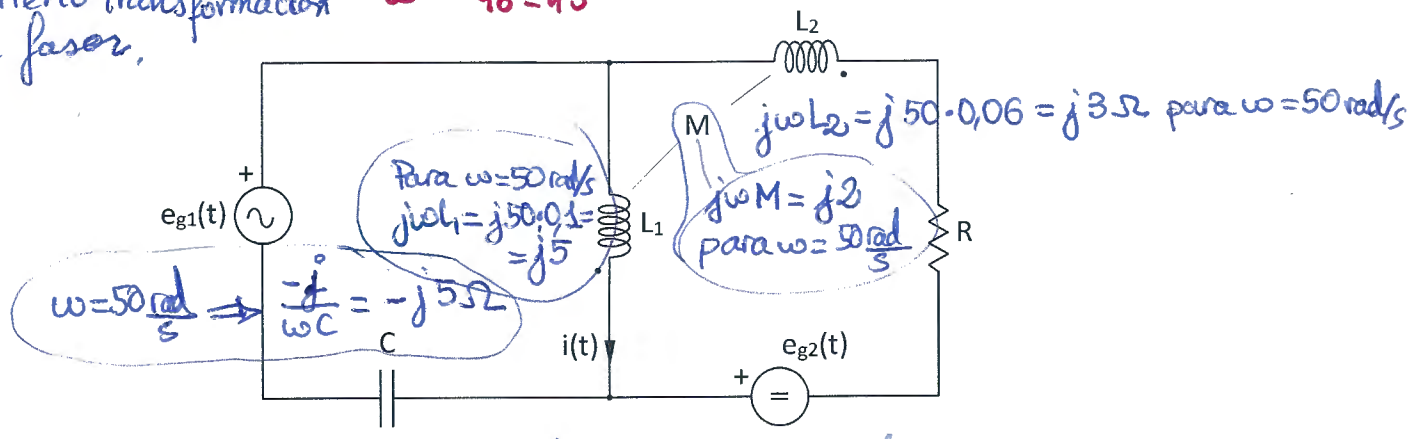 transformación
fasor.
L₂
M
jωL₂ = j50·0,06 = j3Ω para ω = 50 rad/s
Para ω=50 rad/s
jωL₁ = j50·0,1 =
= j5
L₁
jωM = j2
para ω = 50 rad/s
+
e_g1(t)
R
ω=50 rad/s ⇒ -j/ωC = -j5Ω
C
i(t)
e_g2(t)
+
=